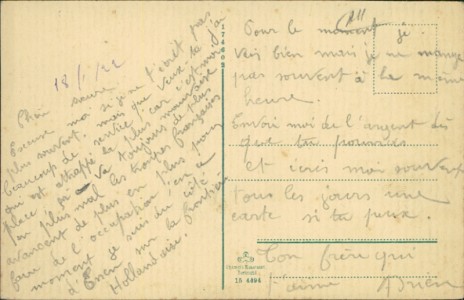 18/1/22
Chère soeur
Excuse moi si je ne t'écrit pas
plus souvent mais que veux-tu j'ai
beaucoup de service car c'est moi
qui est attrappé le plus mauvaise
place. Ça va toujours de plus
en plus mal les troupes françaises
avancent de plus en plus pour
faire de l'occupation. en ce
moment je suis du côté
d'Essen sur la frontière
Hollandaise.
174805
Pour le moment je
vais bien mais je ne mange
pas souvent à la même
heure.
Envoi moi de l'argent dès
que tu pourras
et écris moi souvent
tous les jours une
carte si tu peux.
Ton frère qui
t'aime
15 4494